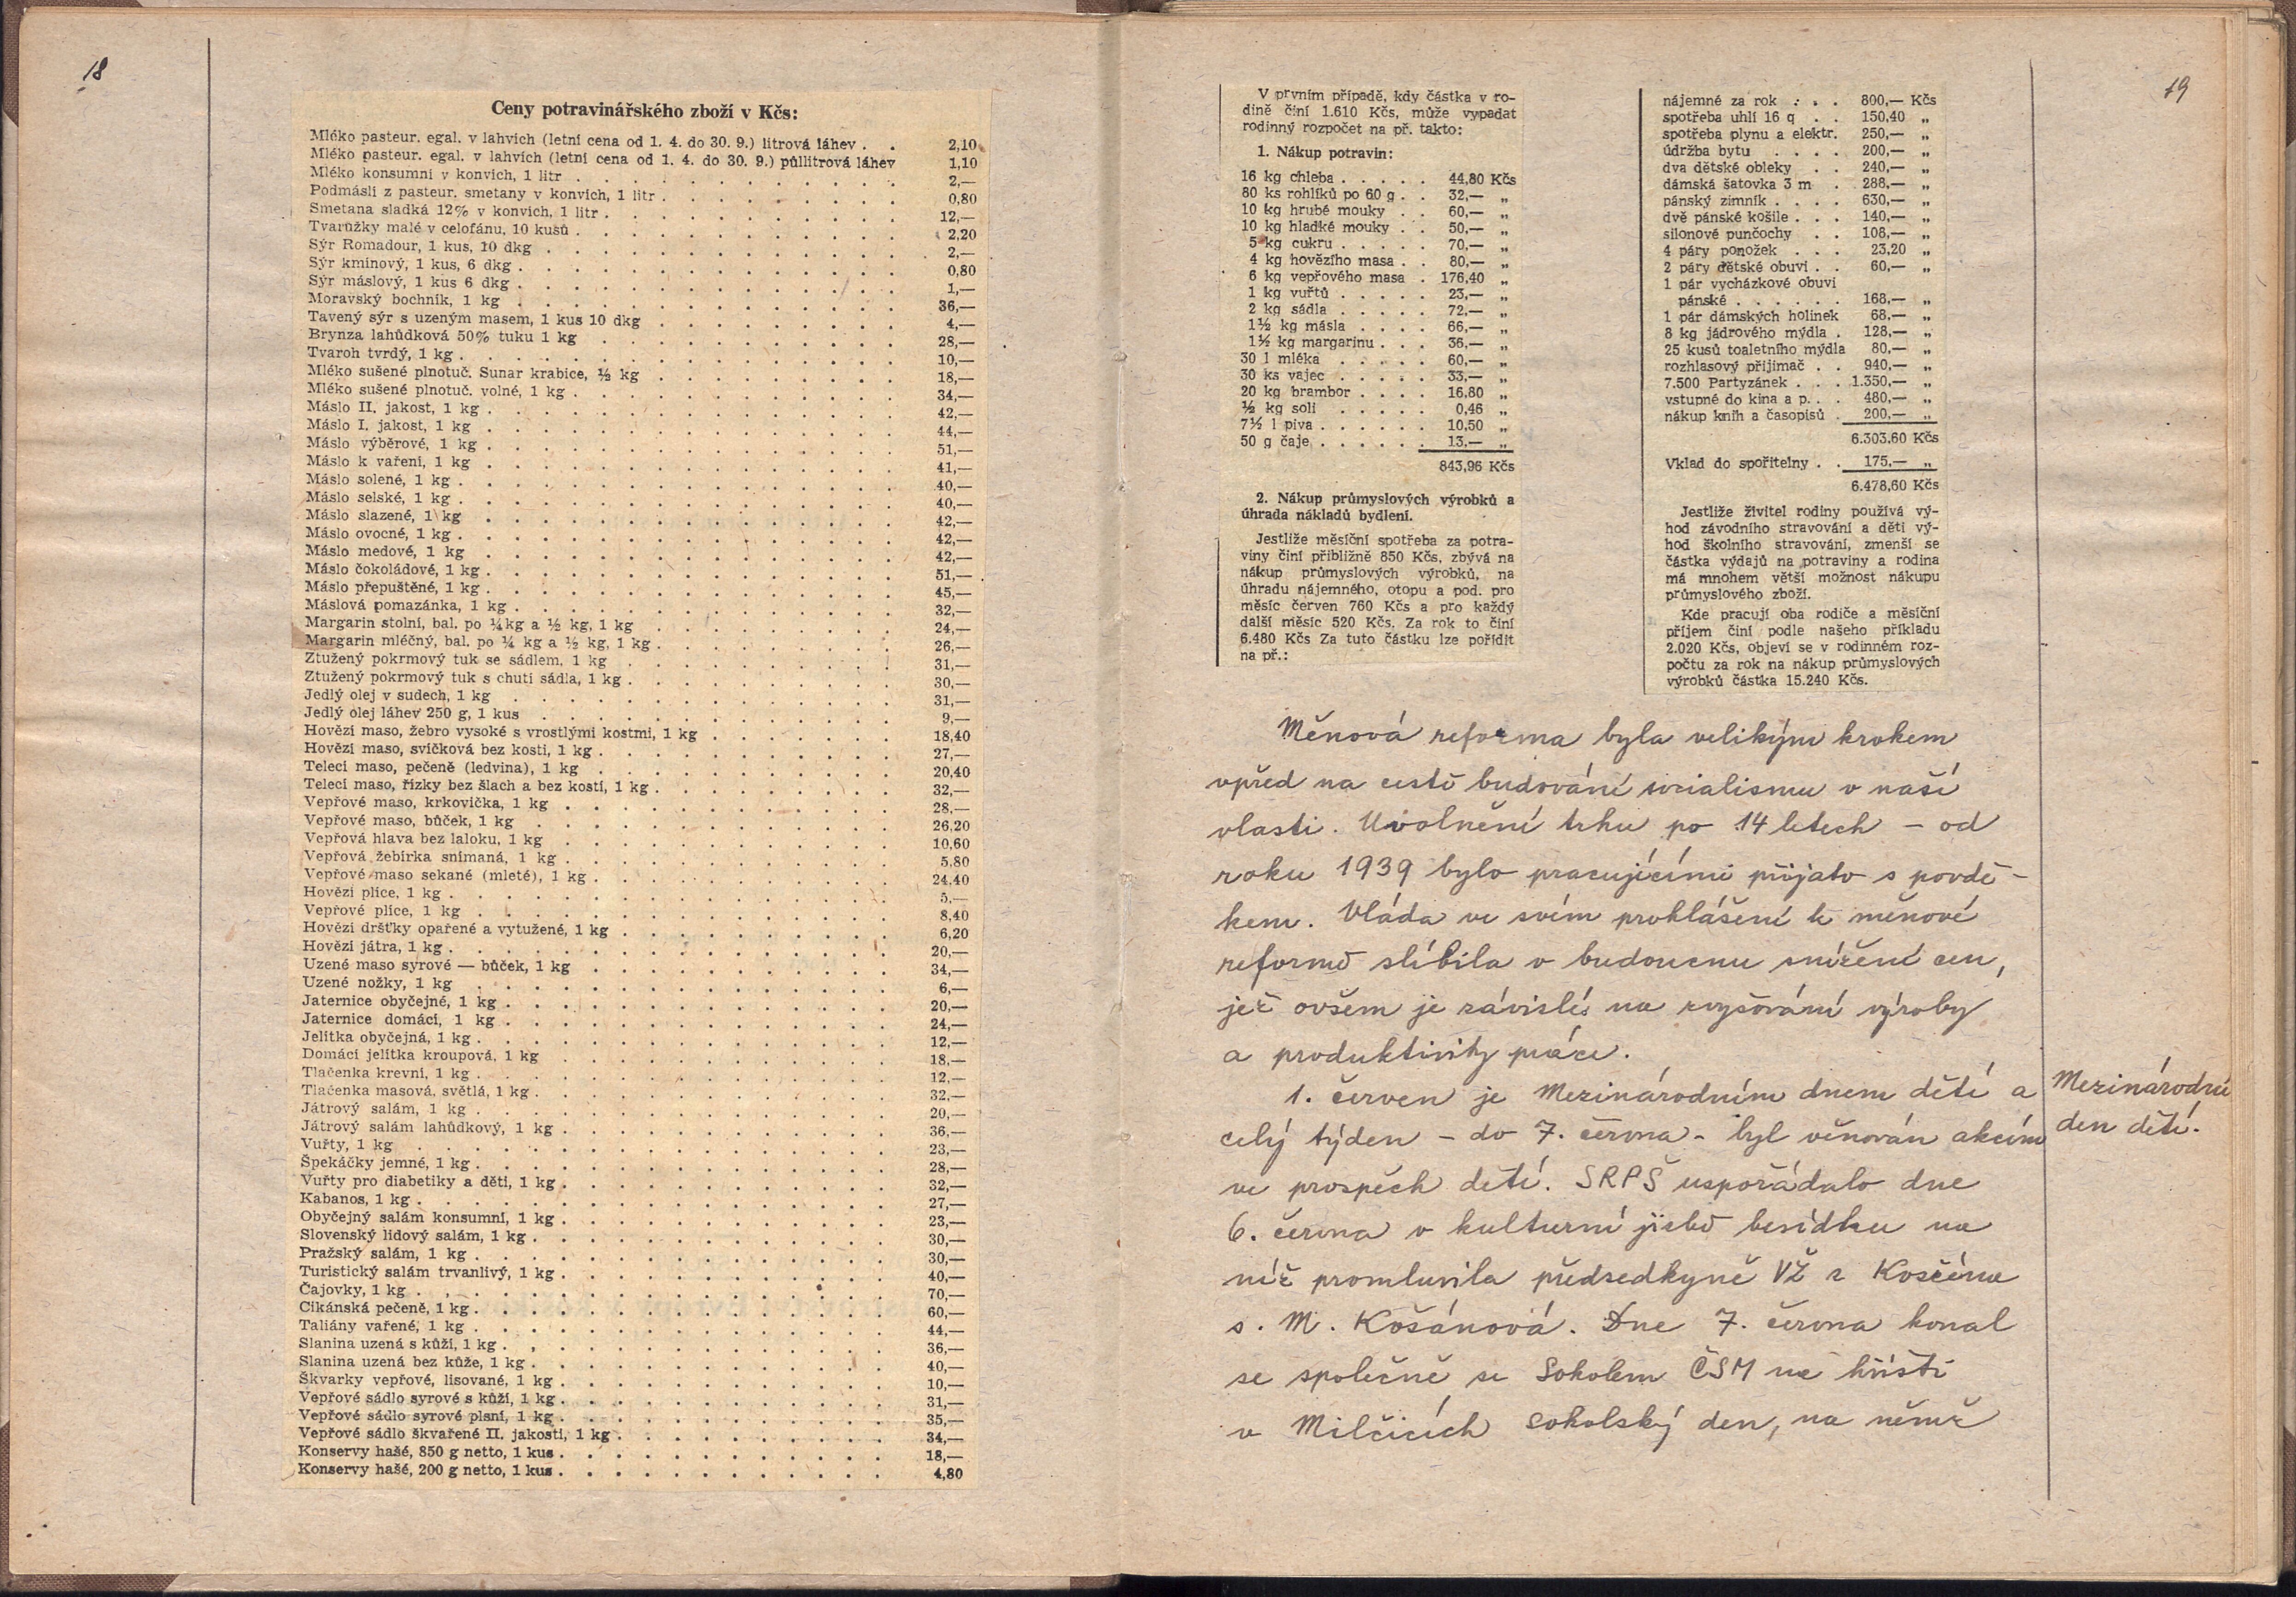 18
Ceny potravinářského zboží v Kčs:
Mléko pasteur. egal. v lahvích (letní cena od 1. 4. do 30. 9.) litrová láhev . . 2,10
Mléko pasteur. egal. v lahvích (letní cena od 1. 4. do 30. 9.) půllitrová láhev 1,10
Mléko konsumní v konvích, 1 litr . . . 2,—
Podmáslí z pasteur. smetany v konvích, 1 litr . . . 0,80
Smetana sladká 12% v konvích, 1 litr . . . 12,—
Tvarůžky malé v celofánu, 10 kusů . . . 2,20
Sýr Romadour, 1 kus, 10 dkg . . . 2,—
Sýr kmínový, 1 kus, 6 dkg . . . 0,80
Sýr máslový, 1 kus 6 dkg . . . 1,—
Moravský bochník, 1 kg . . . 36,—
Tavený sýr s uzeným masem, 1 kus 10 dkg . . . 4,—
Brynza lahůdková 50% tuku 1 kg . . . 28,—
Tvaroh tvrdý, 1 kg . . . 10,—
Mléko sušené plnotuč. Sunar krabice, ½ kg . . . 18,—
Mléko sušené plnotuč. volné, 1 kg . . . 34,—
Máslo II. jakost, 1 kg . . . 42,—
Máslo I. jakost, 1 kg . . . 44,—
Máslo výběrové, 1 kg . . . 51,—
Máslo k vaření, 1 kg . . . 41,—
Máslo solené, 1 kg . . . 40,—
Máslo selské, 1 kg . . . 40,—
Máslo slazené, 1 kg . . . 42,—
Máslo ovocné, 1 kg . . . 42,—
Máslo medové, 1 kg . . . 42,—
Máslo čokoládové, 1 kg . . . 51,—
Máslo přepuštěné, 1 kg . . . 45,—
Máslová pomazánka, 1 kg . . . 32,—
Margarin stolní, bal. po ¼ kg a ½ kg, 1 kg . . . 24,—
Margarin mléčný, bal. po ¼ kg a ½ kg, 1 kg . . . 26,—
Ztužený pokrmový tuk se sádlem, 1 kg . . . 31,—
Ztužený pokrmový tuk s chutí sádla, 1 kg . . . 30,—
Jedlý olej v sudech, 1 kg . . . 31,—
Jedlý olej láhev 250 g, 1 kus . . . 9,—
Hovězí maso, žebro vysoké s vrostlými kostmi, 1 kg . . . 18,40
Hovězí maso, svíčková bez kosti, 1 kg . . . 27,—
Telecí maso, pečeně (ledvina), 1 kg . . . 20,40
Telecí maso, řízky bez šlach a bez kostí, 1 kg . . . 32,—
Vepřové maso, krkovička, 1 kg . . . 28,—
Vepřové maso, bůček, 1 kg . . . 26,20
Vepřová hlava bez laloku, 1 kg . . . 10,60
Vepřová žebírka snímaná, 1 kg . . . 5,80
Vepřové maso sekané (mleté), 1 kg . . . 24,40
Hovězí plíce, 1 kg . . . 5,—
Vepřové plíce, 1 kg . . . 8,40
Hovězí dršťky opařené a vytužené, 1 kg . . . 6,20
Hovězí játra, 1 kg . . . 20,—
Uzené maso syrové — bůček, 1 kg . . . 34,—
Uzené nožky, 1 kg . . . 6,—
Jaternice obyčejné, 1 kg . . . 20,—
Jaternice domácí, 1 kg . . . 24,—
Jelítka obyčejná, 1 kg . . . 12,—
Domácí jelítka kroupová, 1 kg . . . 18,—
Tlačenka krevní, 1 kg . . . 12,—
Tlačenka masová, světlá, 1 kg . . . 32,—
Játrový salám, 1 kg . . . 20,—
Játrový salám lahůdkový, 1 kg . . . 36,—
Vuřty, 1 kg . . . 23,—
Špekáčky jemné, 1 kg . . . 28,—
Vuřty pro diabetiky a děti, 1 kg . . . 32,—
Kabanos, 1 kg . . . 27,—
Obyčejný salám konsumní, 1 kg . . . 23,—
Slovenský lidový salám, 1 kg . . . 30,—
Pražský salám, 1 kg . . . 30,—
Turistický salám trvanlivý, 1 kg . . . 40,—
Čajovky, 1 kg . . . 70,—
Cikánská pečeně, 1 kg . . . 60,—
Taliány vařené, 1 kg . . . 44,—
Slanina uzená s kůží, 1 kg . . . 36,—
Slanina uzená bez kůže, 1 kg . . . 40,—
Škvarky vepřové, lisované, 1 kg . . . 10,—
Vepřové sádlo syrové s kůží, 1 kg . . . 31,—
Vepřové sádlo syrové plsní, 1 kg . . . 35,—
Vepřové sádlo škvařené II. jakosti, 1 kg . . . 34,—
Konservy hašé, 850 g netto, 1 kus . . . 18,—
Konservy hašé, 200 g netto, 1 kus . . . 4,80
19
V prvním případě, kdy částka v ro-
dině činí 1.610 Kčs, může vypadat
rodinný rozpočet na př. takto:
1. Nákup potravin:
16 kg chleba . . . 44,80 Kčs
80 ks rohlíků po 60 g . . 32,— „
10 kg hrubé mouky . . 60,— „
10 kg hladké mouky . . 50,— „
5 kg cukru . . . 70,— „
4 kg hovězího masa . . 80,— „
6 kg vepřového masa . 176,40 „
1 kg vuřtů . . . 23,— „
2 kg sádla . . . 72,— „
1½ kg másla . . . 66,— „
1½ kg margarinu . . . 36,— „
30 l mléka . . . 60,— „
30 ks vajec . . . 33,— „
20 kg brambor . . . 16,80 „
½ kg soli . . . 0,46 „
7½ l piva . . . 10,50 „
50 g čaje . . . 13,— „
843,96 Kčs
2. Nákup průmyslových výrobků a
úhrada nákladů bydlení.
Jestliže měsíční spotřeba za potra-
viny činí přibližně 850 Kčs, zbývá na
nákup průmyslových výrobků, na
úhradu nájemného, otopu a pod. pro
měsíc červen 760 Kčs a pro každý
další měsíc 520 Kčs. Za rok to činí
6.480 Kčs Za tuto částku lze pořídit
na př.:
nájemné za rok . . . 800,— Kčs
spotřeba uhlí 16 q . . 150,40 „
spotřeba plynu a elektr. 250,— „
údržba bytu . . . 200,— „
dva dětské obleky . . 240,— „
dámská šatovka 3 m . 288,— „
pánský zimník . . . 630,— „
dvě pánské košile . . . 140,— „
silonové punčochy . . 108,— „
4 páry ponožek . . . 23,20 „
2 páry dětské obuvi . . 60,— „
1 pár vycházkové obuvi
pánské . . . 168,— „
1 pár dámských holinek 68,— „
8 kg jádrového mýdla . 128,— „
25 kusů toaletního mýdla 80,— „
rozhlasový přijimač . . 940,— „
7.500 Partyzánek . . . 1.350,— „
vstupné do kina a p. . . 480,— „
nákup knih a časopisů . 200,— „
6.303,60 Kčs
Vklad do spořitelny . . 175,— „
6.478,60 Kčs
Jestliže živitel rodiny používá vý-
hod závodního stravování a děti vý-
hod školního stravování, zmenší se
částka výdajů na potraviny a rodina
má mnohem větší možnost nákupu
průmyslového zboží.
Kde pracují oba rodiče a měsíční
příjem činí podle našeho příkladu
2.020 Kčs, objeví se v rodinném roz-
počtu za rok na nákup průmyslových
výrobků částka 15.240 Kčs.
Měnová reforma byla velikým krokem
vpřed na cestě budování socialismu v naší
vlasti. Uvolnění trhu po 14 letech – od
roku 1939 bylo pracujícími přijato s povdě-
kem. Vláda ve svém prohlášení k měnové
reformě slíbila v budoucnu snížení cen,
jež ovšem je závislé na zvyšování výroby
a produktivity práce.
1. červen je Mezinárodním dnem dětí a
celý týden – do 7. června – byl věnován akcím
ve prospěch dětí. SRPŠ uspořádalo dne
6. června v kulturní jizbě besídku na
níž promluvila předsedkyně VŽ z
s. M. Košánová. Dne 7. června konal
se společně se Sokolem ČSM na hřišti
v Milčicích Sokolský den, na němž
Mezinárodní
den dětí.